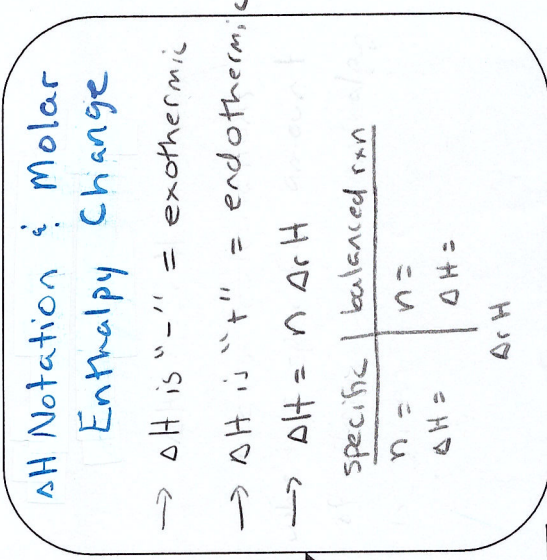 ΔH Notation & Molar
Enthalpy Change
→ ΔH is "-" = exothermic
→ ΔH is "+" = endothermic
→ ΔH = n ΔrH
specific | balanced rxn
n = | n =
ΔH = | ΔH =
ΔrH